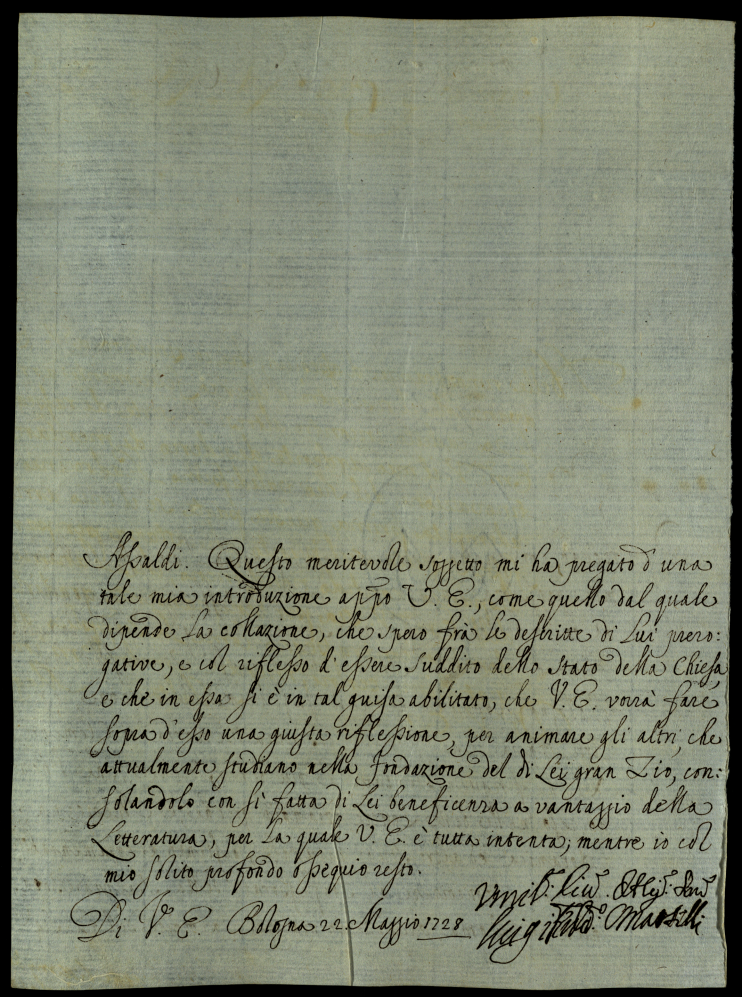 Assaldi. Questo meritevole soggetto mi ha pregato d'una
tale mia introduzione appõ V. E., come quello dal quale
dipende la collazione, che spero frà le descritte di Lui prero:
gative, e col riflesso d'essere suddito dello stato della Chiesa,
e che in essa si è in tal guisa abilitato, che V. E. vorrà fare
sopra d'esso una giusta riflessione, per animare gli altri, che
attualmente studiano nella fondazione del di Lei gran Zio, con:
solandolo con si fatta di Lei beneficenza a vantaggio della
Letteratura, per la quale V. E. è tutta intenta; mentre io col
mio solito profondo ossequio resto.
Di V. E. Bologna 22 Maggio 1728
Luigi Ferd.º Marsilli